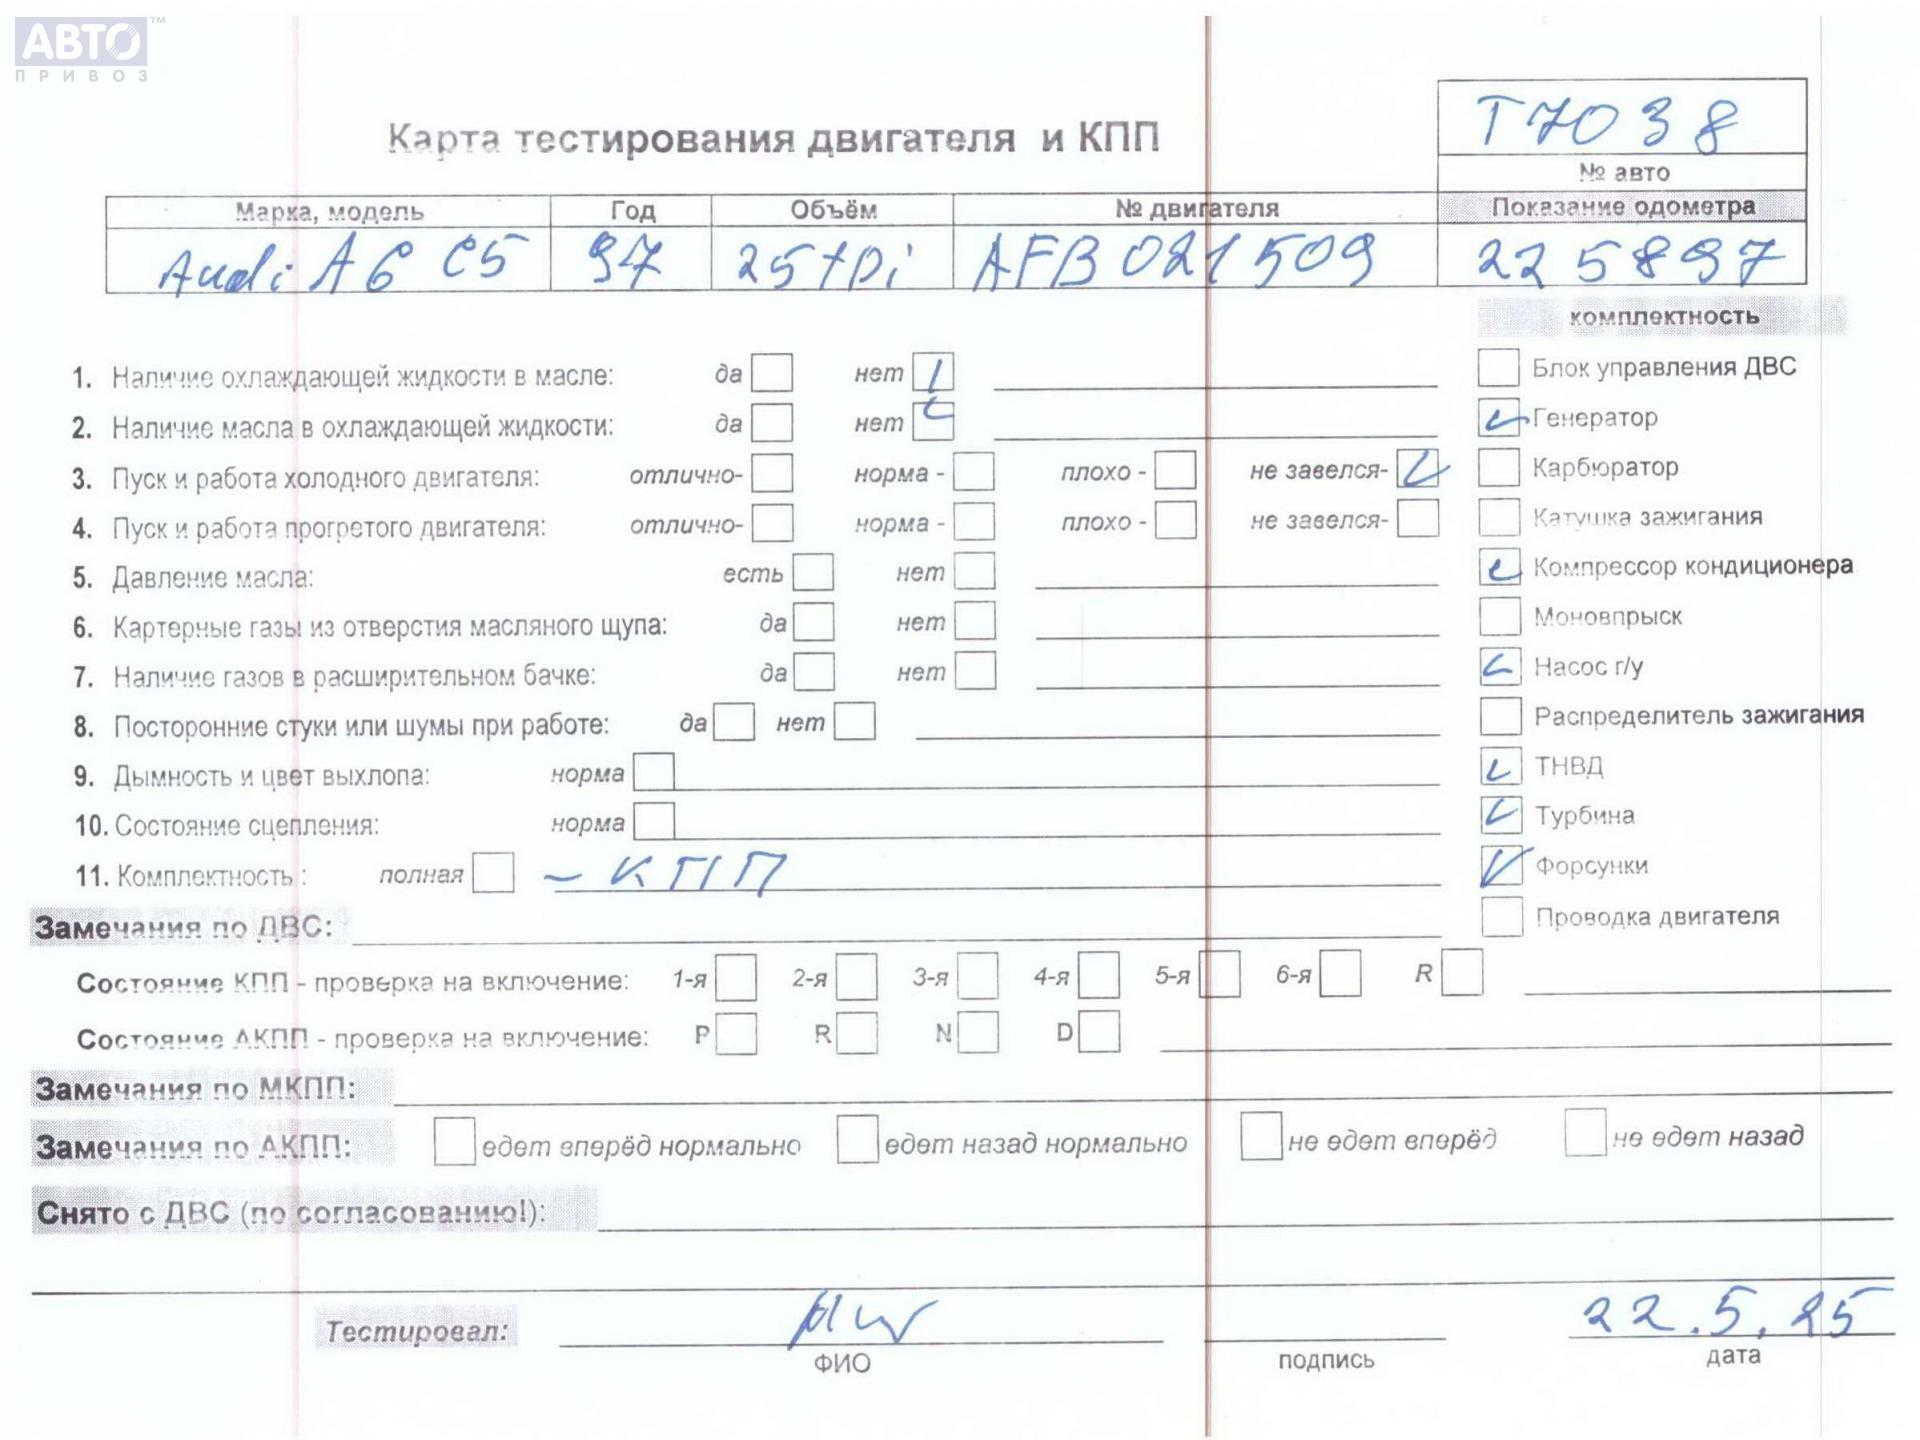 АВТО™
ПРИВОЗ
Т7038
Карта тестирования двигателя и КПП
№ авто
Марка, модель Год Объём № двигателя Показание одометра
Audi A6 C5 97 25 tDi AFB021509 225897
комплектность
1. Наличие охлаждающей жидкости в масле: да нет Блок управления ДВС
2. Наличие масла в охлаждающей жидкости: да нет Генератор
3. Пуск и работа холодного двигателя: отлично- норма - плохо - не завелся- Карбюратор
4. Пуск и работа прогретого двигателя: отлично- норма - плохо - не завелся- Катушка зажигания
5. Давление масла: есть нет Компрессор кондиционера
6. Картерные газы из отверстия масляного щупа: да нет Моновпрыск
7. Наличие газов в расширительном бачке: да нет Насос г/у
8. Посторонние стуки или шумы при работе: да нет Распределитель зажигания
9. Дымность и цвет выхлопа: норма ТНВД
10. Состояние сцепления: норма Турбина
11. Комплектность : полная – КПП Форсунки
Замечания по ДВС: Проводка двигателя
Состояние КПП - проверка на включение: 1-я 2-я 3-я 4-я 5-я 6-я R
Состояние АКПП - проверка на включение: P R N D
Замечания по МКПП:
Замечания по АКПП: едет вперёд нормально едет назад нормально не едет вперёд не едет назад
Снято с ДВС (по согласованию!):
Тестировал: 22.5.25
ФИО подпись дата